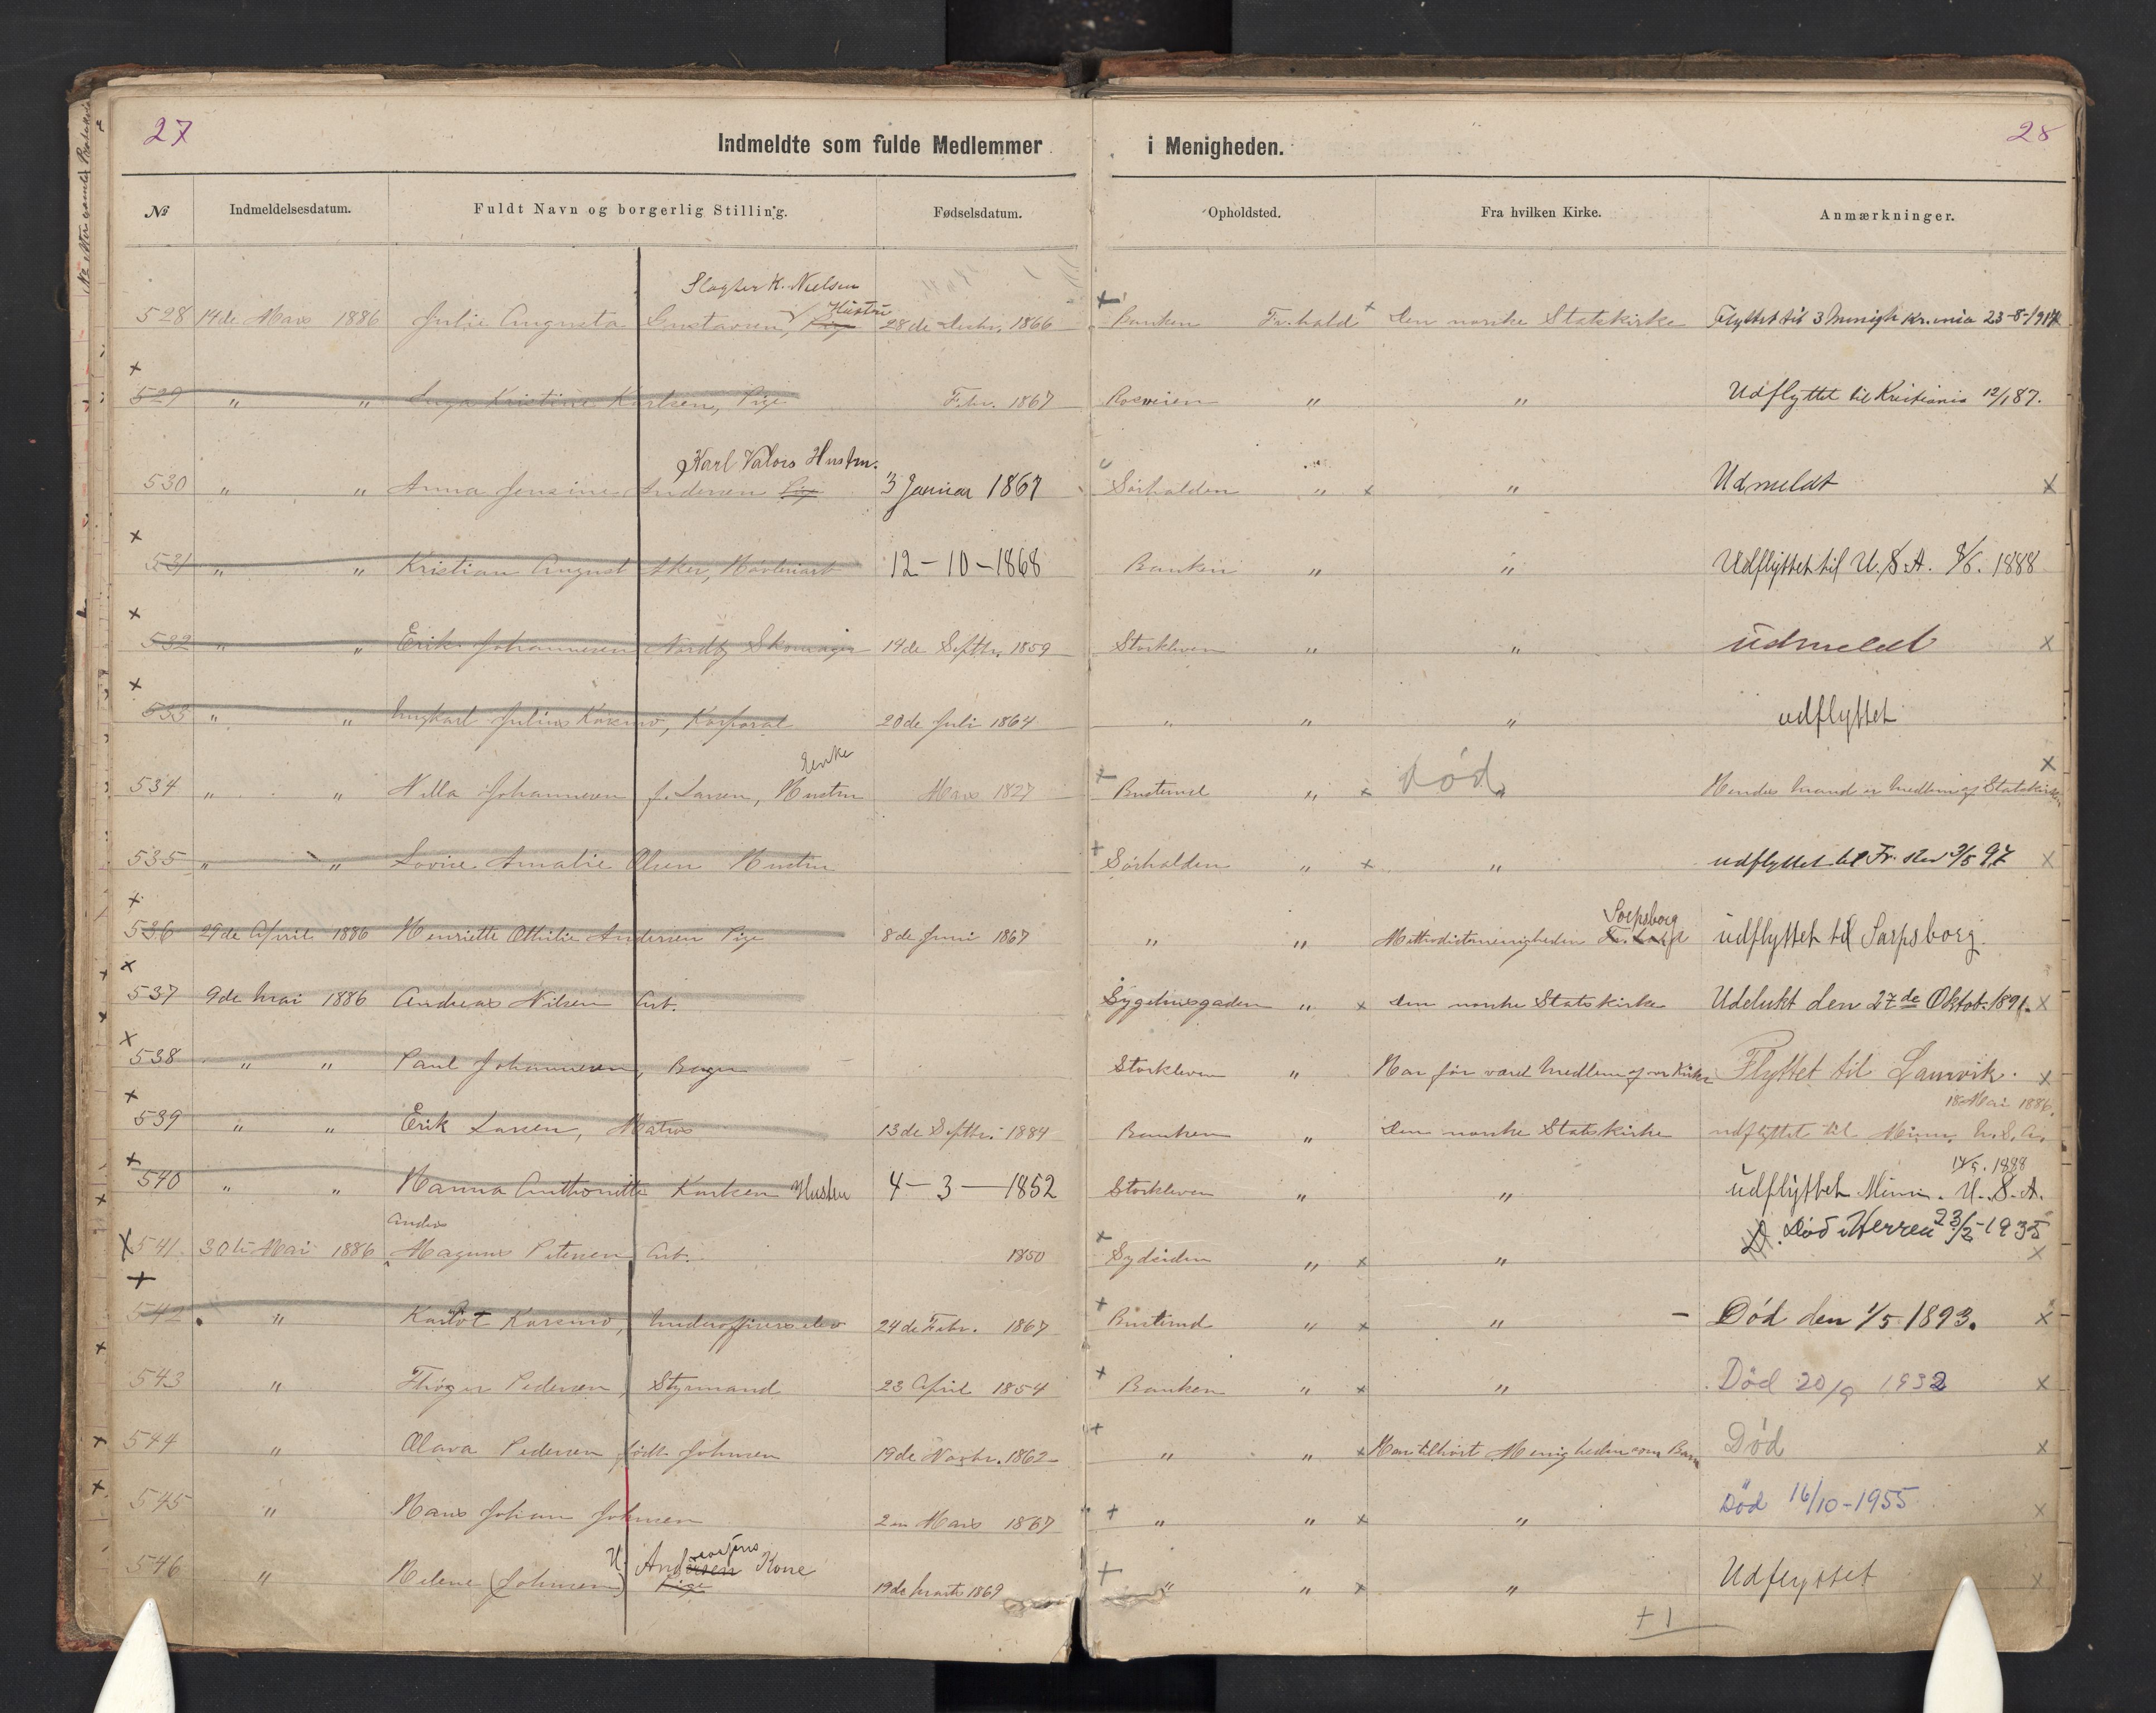 27
Indmeldte som fulde Medlemmer i Menigheden.
28
№ Indmeldelsesdatum. Fuldt Navn og borgerlig Stilling. Fødselsdatum. Opholdsted. Fra hvilken Kirke. Anmærkninger.
Slagter K. Nielsen
Hustru
528 14de Mars 1886 Julie Augusta Gustavsen, Pige 28de Decbr. 1866 Banken Fr.hald Den norske Statskirke Flyttet til 3 Menigh Kr.ania 23-8-1914
529 " " Inga Kristine Karlsen, Pige Febr. 1867 " " Udflyttet til Kristiania 12/1 87.
Karl Valors Hustru.
530 " " Anna Jensine Andersen Pige 3 Januar 1867 Sørhalden " " Udmeldt
531 " " Kristian August 12-10-1868 Banken " " Udflyttet til U.S.A. 8/6. 1888
532 " " Erik Johannesen Nordby Skomager 14de Septbr. 1859 Storkleven " " udmeldt
533 " " Julius Korsmo, Korporal 20de Juli 1864 " " " udflyttet
Enke
534 " " Nilla Johannesen f. Larsen, Hustru Mars 1827 Busterud " " Død Hendes mand er medlem af Statskirken
535 " " Lovise Amalie Olsen Hustru Sørhalden " " udflyttet til Fr. sted 3/5 97
Sarpsborg
536 29de April 1886 Henriette Othilie Andersen Pige 8de Juni 1867 " " Methodistmenigheden udflyttet til Sarpsborg.
537 9de Mai 1886 Andreas Nilsen Arb. Sygehusgaden " Den norske Statskirke Udelukt den 27de Oktob. 1891.
538 " " Paul Johannesen, Bager Storkleven " Har før været Medlem af vor Kirke Flyttet til Laurvik.
18 Mai 1886.
539 " " Erik Larsen, Matros 13de Septbr. 1884 Banken " Den norske Statskirke udflyttet til Minn. U.S.A.
14/5. 1888
540 " " Hanna Anthonette Karlsen Hustru 4-3-1852 Storkleven " " udflyttet Minn. U.S.A.
Anders
541 30te Mai 1886 Magnus Petersen Arb. 1850 Sydsiden " " Død i Herren 23/5-1935
542 " Karlot Korsmo, Underofficerselev 24de Febr. 1867 Busterud " " - Død den 1/5 1893.
543 " Thøger Pedersen, Styrmand 23 April 1854 Banken " " Død 20/9 1932
544 " Olava Pedersen født Johnsen 19de Novbr. 1862 " " Har tilhørt Menigheden som Barn Død
545 " Hans Johan Johnsen 2den Mars 1867 " " " Død 16/10-1955
546 " Helene (Johnsen) Andersen Kone Pige 19de Marts 1869 " " " Udflyttet
+ 1